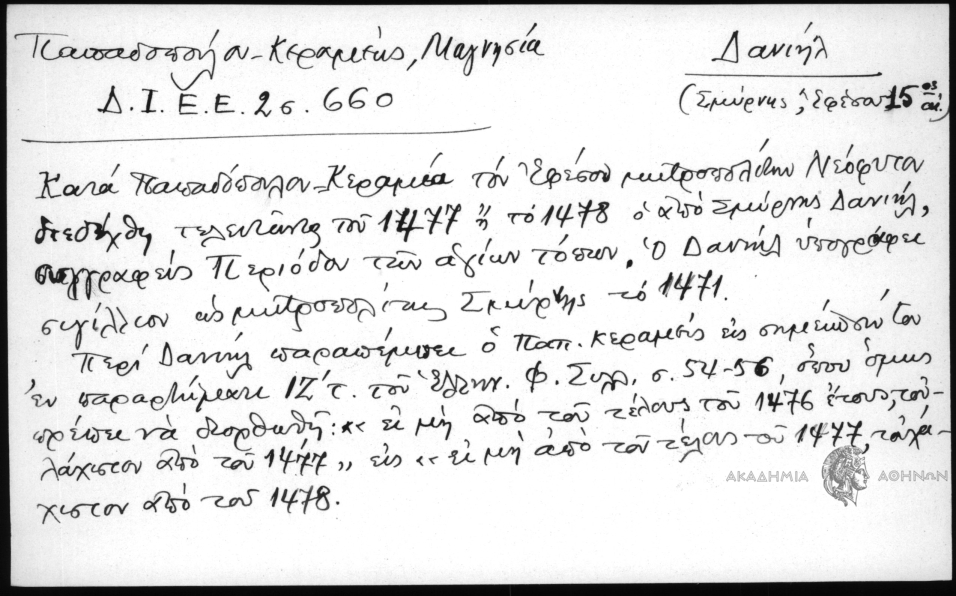 Παπαδοπούλου-Κεραμεύς, Μαγνησία
Δανιήλ
Δ.Ι.Ε.Ε. 2 σ. 660
(Σμύρνης, ἢ Ἐφέσου 15ος αἰ.)
Κατὰ Παπαδόπουλον-Κεραμέα τὸν Ἐφέσου μητροπολίτην Νεόφυτον
διεδέχθη τελευτῶντος τοῦ 1477 ἢ τὸ 1478 ὁ ἀπὸ Σμύρνης Δανιήλ,
συγγραφεὺς Περιόδου τῶν ἁγίων τόπων. Ὁ Δανιὴλ ὑπογράφει
σιγίλλιον ὡς μητροπολίτης Σμύρνης τὸ 1471.
Περὶ Δανιὴλ παραπέμπει ὁ Παπ. Κεραμεὺς εἰς σημείωσίν του
ἐν παραρτήματι ΙΖ΄ τ. τοῦ Ἑλλην. Φ. Συλ. σ. 54-56, ὅπου ὅμως
πρέπει νὰ διορθωθῇ: «εἰ μὴ ἀπὸ τοῦ τέλους τοῦ 1476 ἔτους, τοὐ-
λάχιστον ἀπὸ τοῦ 1477» εἰς «εἰ μὴ ἀπὸ τοῦ τέλους τοῦ 1477, τοὐλά-
χιστον ἀπὸ τοῦ 1478.
ΑΚΑΔΗΜΙΑ ΑΘΗΝΩΝ